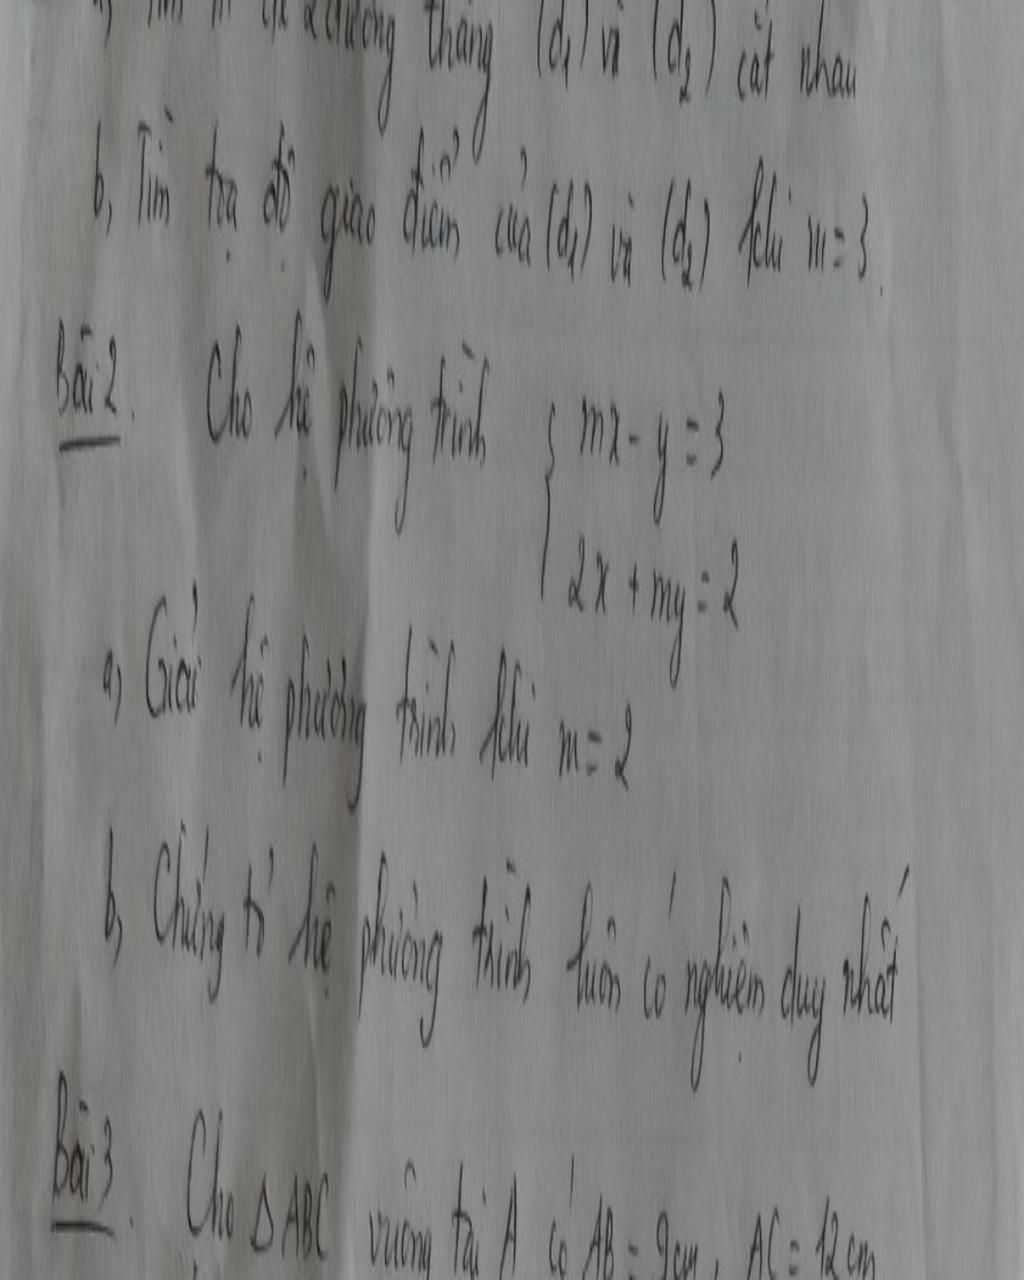 đường thẳng (d₁) và (d₂) cắt nhau
b, Tìm toạ độ giao điểm của (d₁) và (d₂) khi m = 3.
Bài 2. Cho hệ phương trình { mx - y = 3
2x + my = 2
a, Giải hệ phương trình khi m = 2
b, Chứng tỏ hệ phương trình luôn có nghiệm duy nhất
Bài 3. Cho Δ ABC vuông tại A có AB = 9cm, AC = 12cm